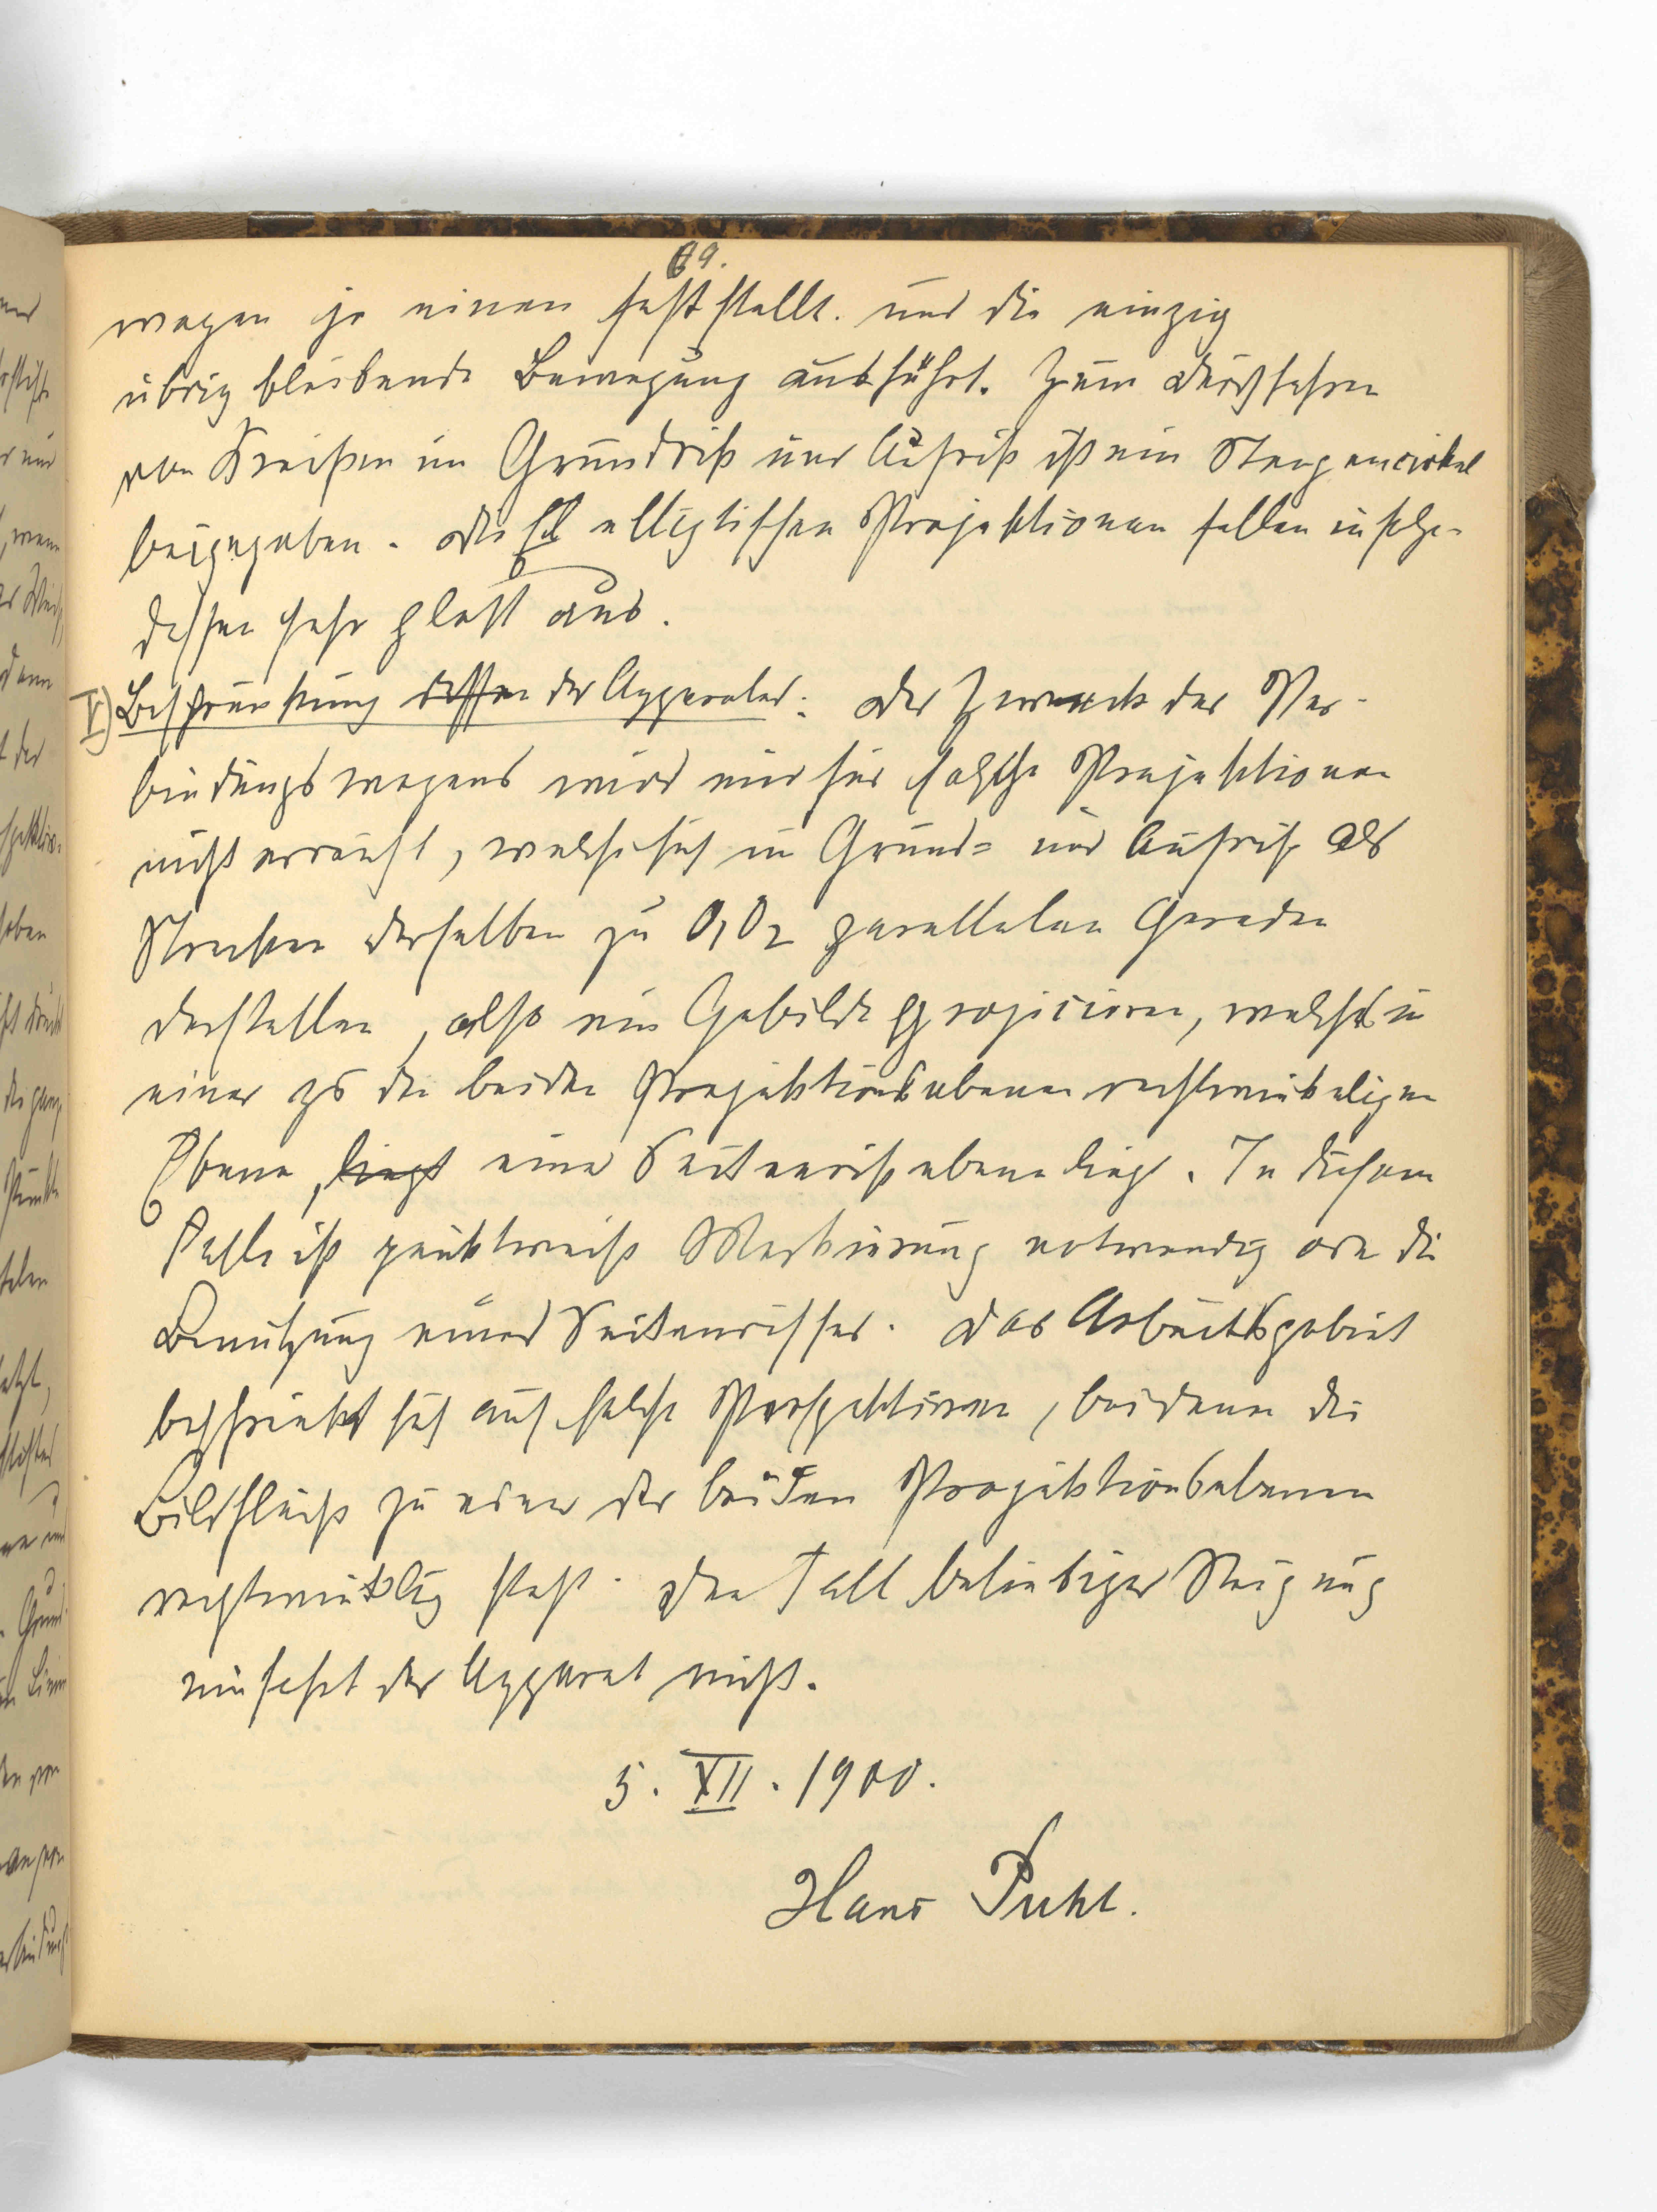 69.
wagen je einen feststellt. und die einzig
übrig bleibende Bewegung ausführt. Zum Durchfahren
von Kreisen im Grundriß und Aufriß ist ein Stangencirkel
beigegeben. Die elliptischen Projektionen fallen infolge-
dessen sehr glatt aus.
V) Beschränkung dessen des Apparates: Der Zweck des Ver-
bindungswagens wird nur für solche Projektionen
nicht erreicht, welche sich in Grund= und Aufriß als
Strecken derselben zu O₁O₂ parallelen Geraden
darstellen, also ein Gebilde projicieren, welches in
einer zu den beiden Projektionsebenen rechtwinkeligen
Ebene, liegt einer Seitenrißebene liegt. In diesem
Falle ist punktweise Markierung notwendig oder die
Benützung eines Seitenrisses. Das Arbeitsgebiet
beschränkt sich auf solche Perspektiven, bei denen die
Bildfläche zu einer der beiden Projektionsebenen
rechtwinklig steht. Den Fall beliebiger Neigung
umfaßt der Apparat nicht.
5. XII. 1900.
Hans Puhl.